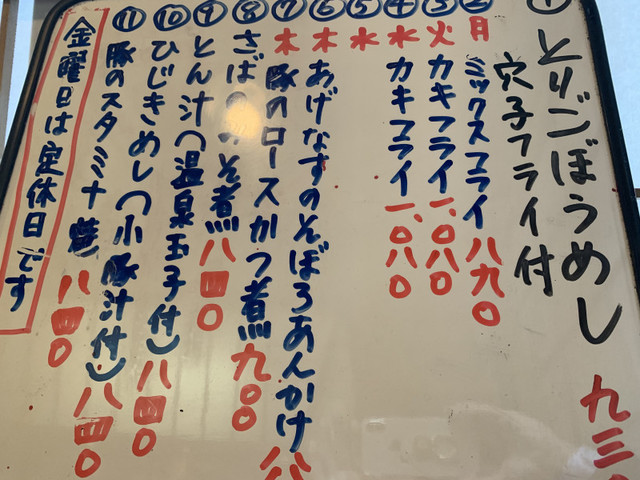 ① とりごぼうめし
穴子フライ付
九三〇
② 月 ミックスフライ 八九〇
③ 火 カキフライ 一、〇八〇
④ 水 カキフライ 一、〇八〇
⑤ 水
⑥ 木 あげなすのそぼろあんかけ 八
⑦ 木 豚のロースかつ煮 九〇〇
⑧ さばのみそ煮 八四〇
⑨ とん汁(温泉玉子付) 八四〇
⑩ ひじきめし(小豚汁付) 八四〇
⑪ 豚のスタミナ焼 八四〇
金曜日は定休日です